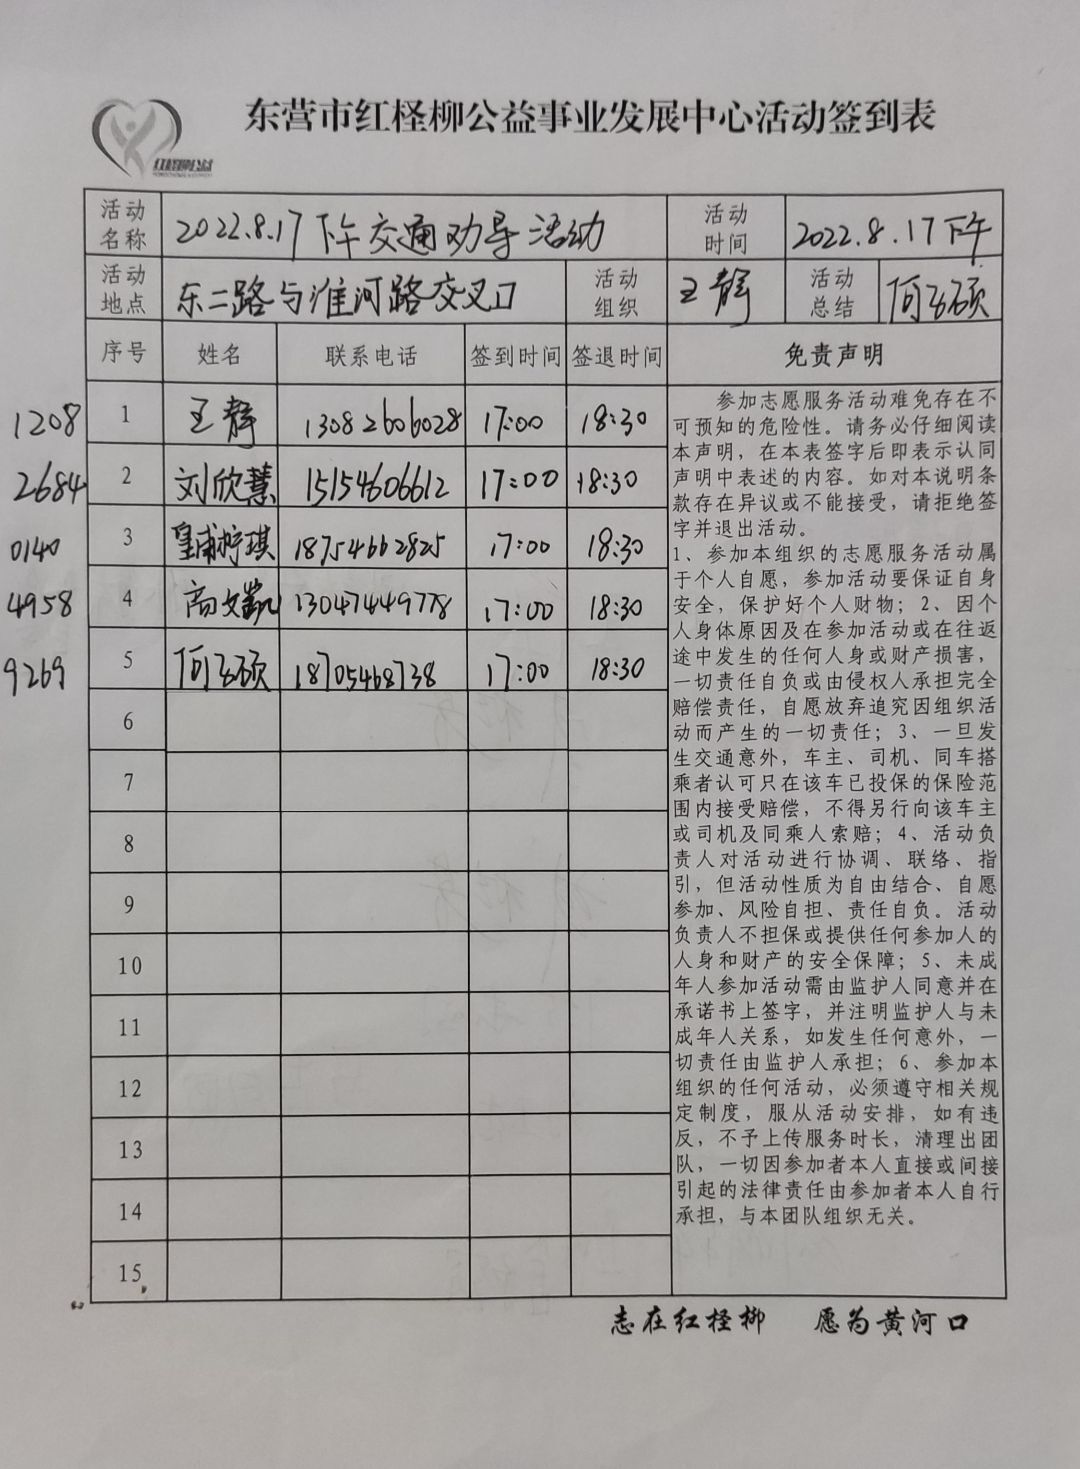 东营市红柽柳公益事业发展中心活动签到表
红柽柳公益
活动名称 2022.8.17下午交通劝导活动 活动时间 2022.8.17下午
活动地点 东二路与淮河路交叉口 活动组织 王静 活动总结
序号 姓名 联系电话 签到时间 签退时间 免责声明
1208 1 王静 13082606028 17:00 18:30
2684 2 刘欣慧 15154606612 17:00 18:30
0140 3 皇甫 琪 18754662825 17:00 18:30
4958 4 高文凯 13047449778 17:00 18:30
9269 5 18705468738 17:00 18:30
6
7
8
9
10
11
12
13
14
15
参加志愿服务活动难免存在不
可预知的危险性。请务必仔细阅读
本声明，在本表签字后即表示认同
声明中表述的内容。如对本说明条
款存在异议或不能接受，请拒绝签
字并退出活动。
1、参加本组织的志愿服务活动属
于个人自愿，参加活动要保证自身
安全，保护好个人财物；2、因个
人身体原因及在参加活动或在往返
途中发生的任何人身或财产损害，
一切责任自负或由侵权人承担完全
赔偿责任，自愿放弃追究因组织活
动而产生的一切责任；3、一旦发
生交通意外，车主、司机、同车搭
乘者认可只在该车已投保的保险范
围内接受赔偿，不得另行向该车主
或司机及同乘人索赔；4、活动负
责人对活动进行协调、联络、指
引，但活动性质为自由结合、自愿
参加、风险自担、责任自负。活动
负责人不担保或提供任何参加人的
人身和财产的安全保障；5、未成
年人参加活动需由监护人同意并在
承诺书上签字，并注明监护人与未
成年人关系，如发生任何意外，一
切责任由监护人承担；6、参加本
组织的任何活动，必须遵守相关规
定制度，服从活动安排，如有违
反，不予上传服务时长，清理出团
队，一切因参加者本人直接或间接
引起的法律责任由参加者本人自行
承担，与本团队组织无关。
志在红柽柳 愿为黄河口